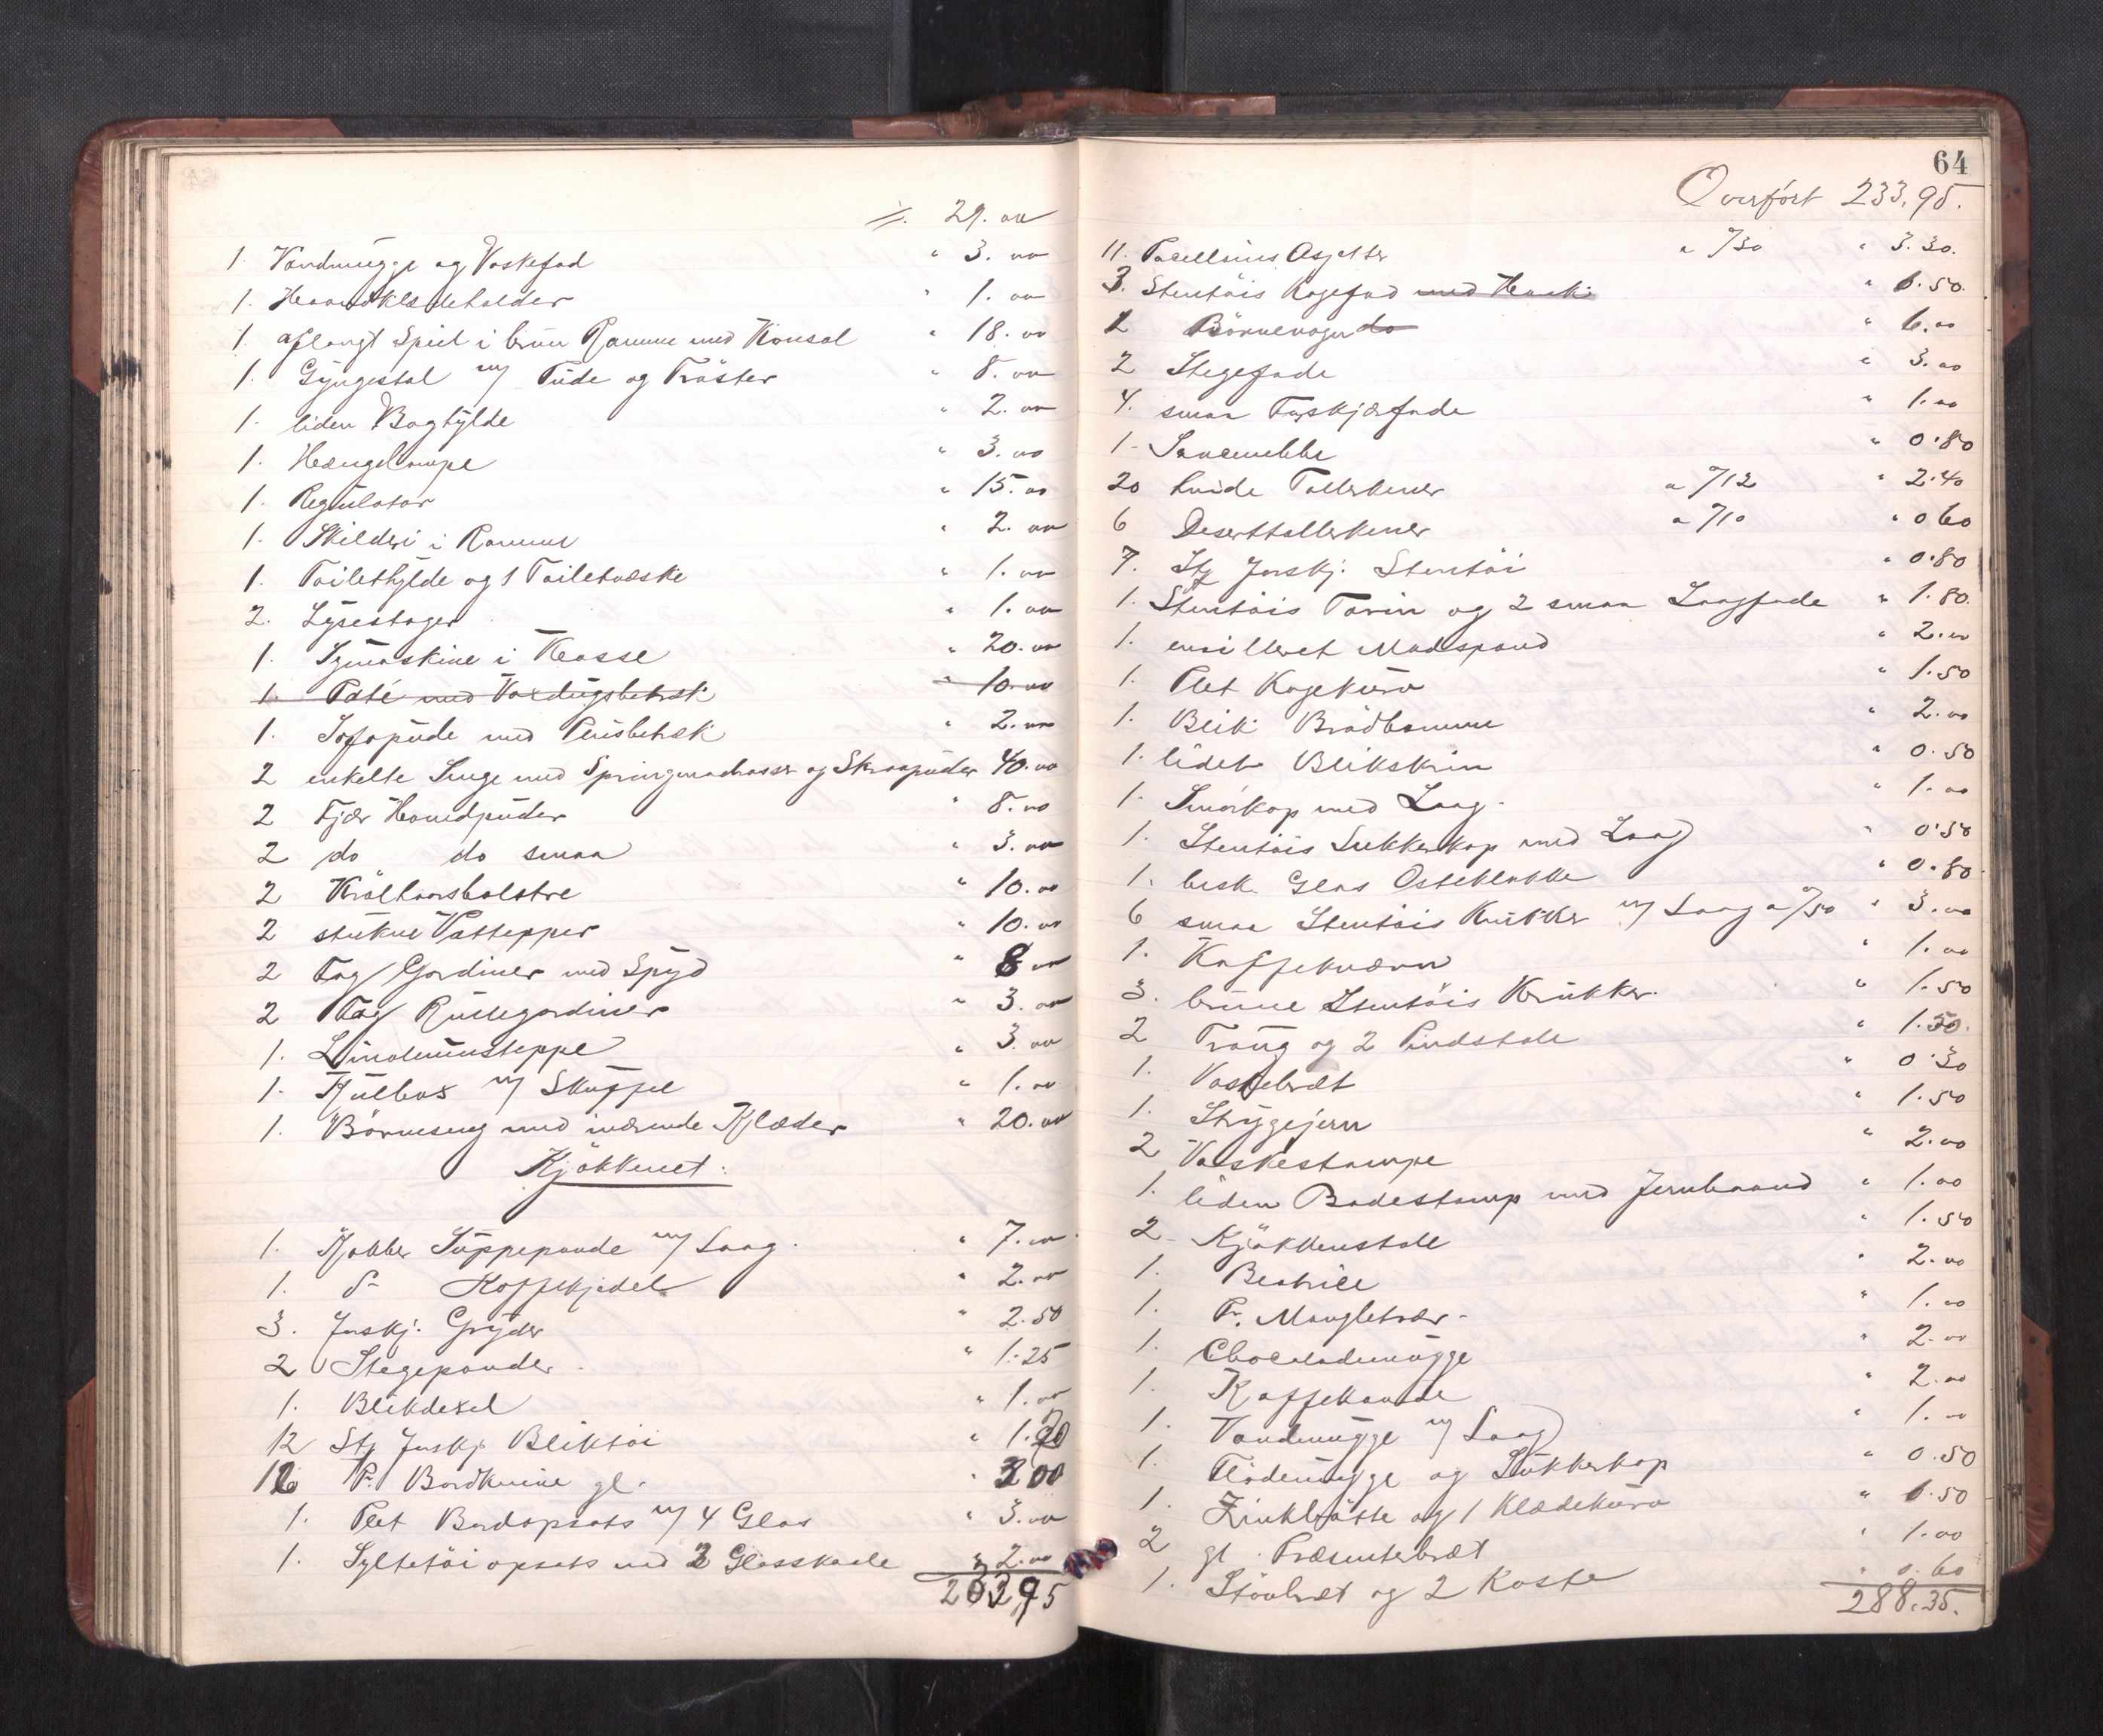 29. 00
1. Vandmugge og Vaskefad " 3. 00
1. Haandklædeholder " 1. 00
1. aflangt Speil i brun Ramme med Konsol " 18. 00
1. Gyngestol m/ Pude og Trøster " 8. 00
1. liden Boghylde " 2. 00
1. Hængelampe " 3. 00
1. Regulator " 15. 00
1. Skilderi i Ramme " 2. 00
1. Toilethylde og 1 Toiletvæske " 1. 00
2. Lysestager " 1. 00
1. Symaskine i Kasse " 20. 00
1. Paté med Voxdugsbetræk " 10. 00
1. Sofapude med Plusbetræk " 2. 00
2 enkelte Senge med Springmadrasser og Skraapuder 40. 00
2 Fjær Hovedpuder " 8. 00
2 do do smaa " 3. 00
2 Krølhaarsbolstre " 10. 00
2 stukne Vattepper " 10. 00
2 Fag Gardiner med Spyd " 8 00
2 Fag Rullegardiner " 3. 00
1. Linoleumsteppe " 3. 00
1. Kulbox m/ Skuffel " 1. 00
1. Børneseng med iværende Klæder " 20. 00
Kjøkkenet:
1. Kobber Suppepande m/ Laag. " 7. 00
1. do Kaffekjedel " 2. 00
3. forskj. Gryder " 2. 50
2 Stegepander. " 1. 25
1. Blikdexel " 1. 00
12 Stk forskj. Bliktøi " 1. 20
Pr. Bordknive gl. 00
1. Plet Bordopsats m/ 4 Glas " 3. 00
1. Syltetøi opsats med 2 Glasskaale " 2. 00
233,95
64
Overført 233,95.
11. Porcellains Asjetter a /30 " 3. 30.
3. Stentøis Kagefad med Hank " 50.
Børnevogn do " 6. 00
2 Stegefade " 3. 00
4. smaa Forskjærfade " 1. 00
1. Saucenebbe " 0. 80
20 hvide Tallerkener a /12 " 2. 40
6 Deserttallerkener a /10 " 0 60
7. Stk forskj. Stentøi " 0. 80
1. Stentøis Terrin og 2 smaa Laagfade " 1. 80.
1. emilleret Madspand " 2. 00
1. Plet Kagekurv " 1. 50
1. Blik Brødbomme " 2. 00
1. lidet Blikskrin " 0. 50
1. Smørkop med Laag. " 1. 00
1. Stentøis Sukkerkop med Laag " 0. 50
1. besk. Glas Osteklokke " 0. 80
6 smaa Stentøis Krukker m/ Laag a /50 " 3. 00
1. Kaffekværn " 1. 00
3. brune Stentøis Krukker. " 1. 50
2 Traug og 2 Pindstole " 1. 50.
1. Vaskebræt " 0. 30
1. Strygejern " 1. 50
2 Vaskestampe " 2. 00
1. liden Badestamp med Jernbaand " 1. 00
2 Kjøkkenstole " 1. 50
1. Beatrice " 2. 00
1. Pr. Mangletrær. " 1. 00
1. Chocolademugge " 2. 00
1. Kaffekande " 2. 00
1. Vandmugge m/ Laag " 1. 00
1. Flødemugge og Sukkerkop " 0. 50
1. Zinkbøtte og 1 Klædekurv " 50
2 gl. Præsenterbræt " 1. 00
1. Støvbræt og 2 Koste " 0. 60
288.35.